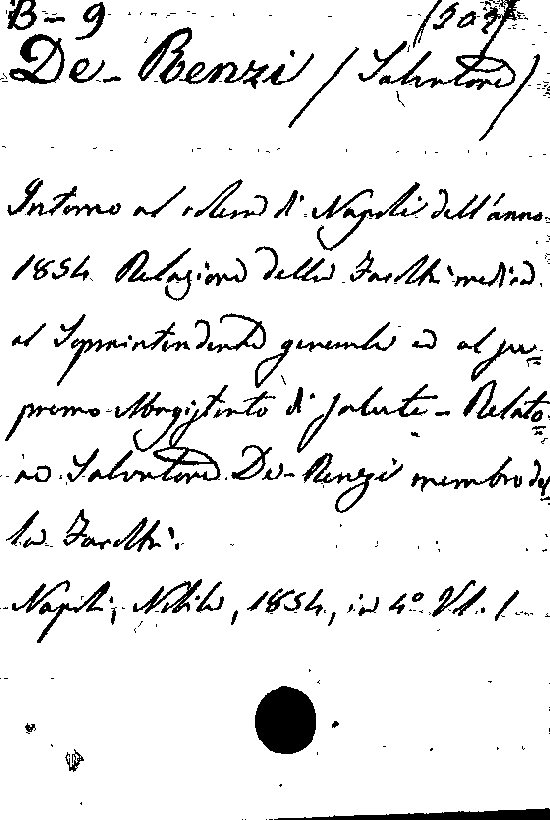 B-9 (302)
De-Renzi (Salvatore)
Intorno al colera di Napoli dell'anno
1854 Relazione della Facoltà medica
al Soprintendente generale ed al su=
premo Magistrato di salute - Relato=
re Salvatore De-Renzi membro del=
la Facoltà.
Napoli, Nobile, 1854, in 4º Vol. 1